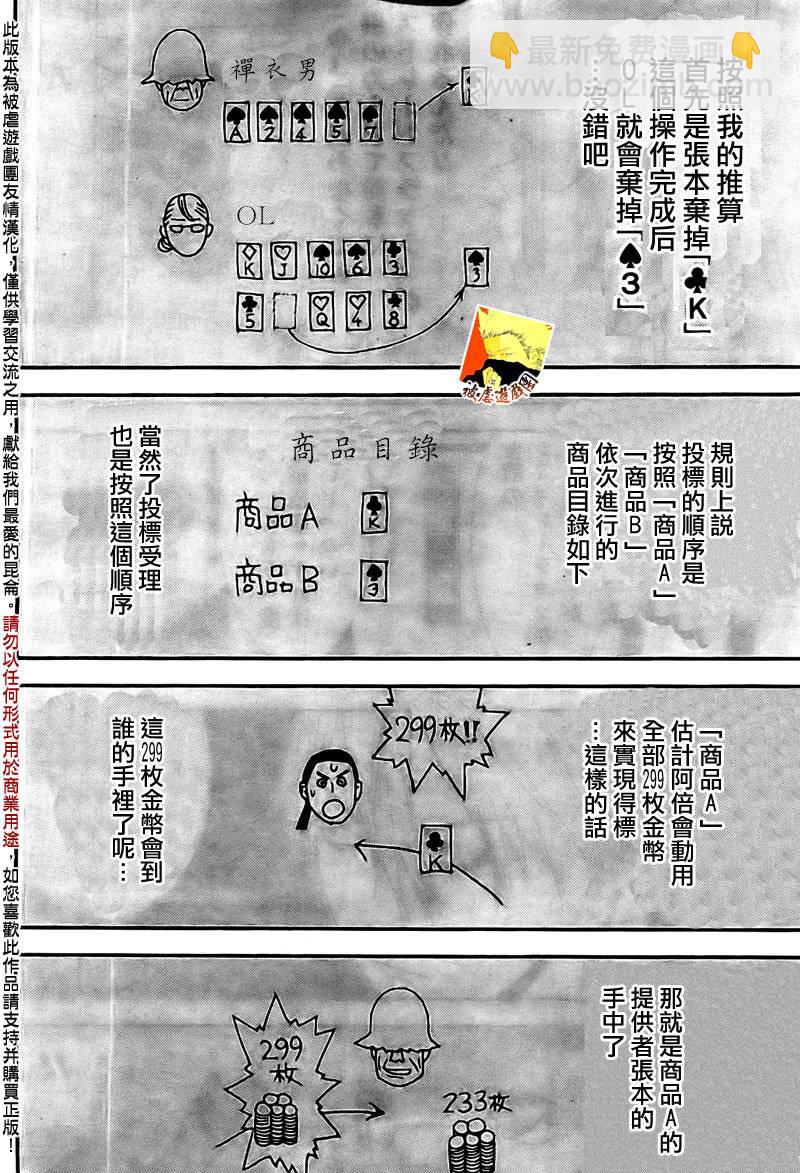 此版本為被虐遊戲團友情漢化，僅供學習交流之用，獻給我們最愛的昆侖。請勿以任何形式用於商業用途，如您喜歡此作品請支持并購買正版！
最新免費漫画
按照我的推算
首先是張本棄掉「♣K」
這個操作完成后
OL就會棄掉「♠3」
…沒錯吧
禪衣男
A
2
4
5
7
OL
K
J
10
6
3
5
Q
4
8
3
被虐遊戲團
規則上説
投標的順序是
按照「商品A」
「商品B」
依次進行的
商品目錄如下
商品目錄
商品A
K
商品B
3
當然了投標受理
也是按照這個順序
「商品A」
估計阿倍會動用
全部299枚金幣
來實現得標
…這樣的話
299枚!!
K
這299枚金幣會到
誰的手裡了呢…
那就是商品A的
提供者張本的
手中了
299
枚
233枚